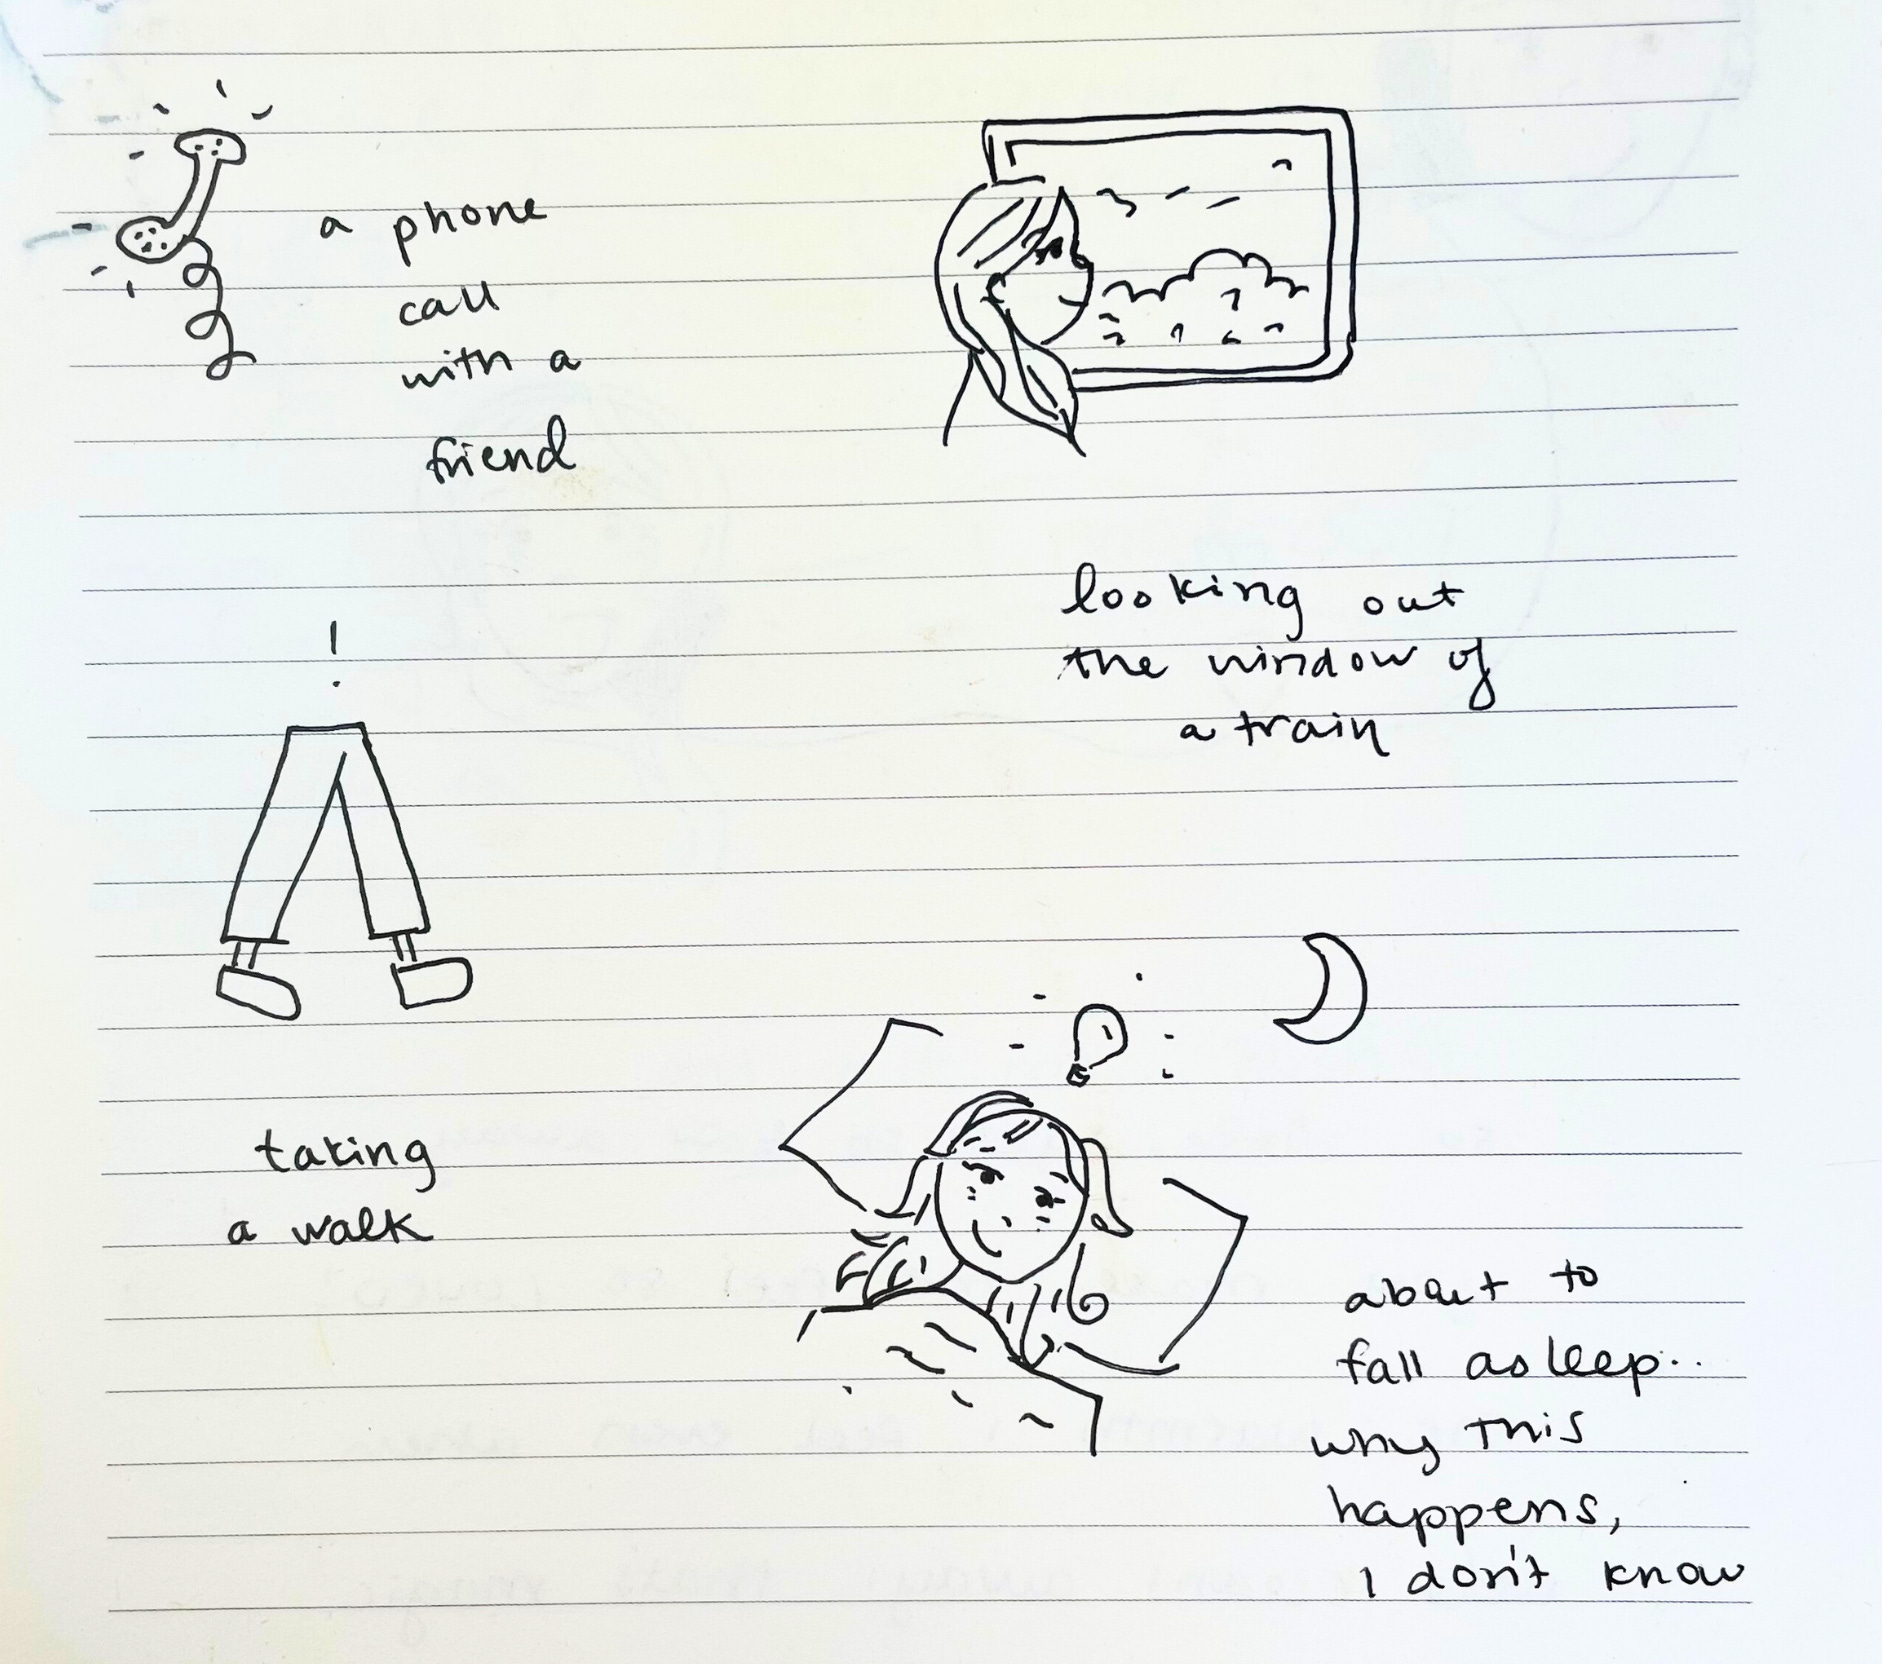 a phone
call
with a
friend
looking out
the window of
a train
!
taking
a walk
about to
fall asleep..
why this
happens,
I don't know